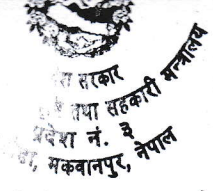 सरकार
तथा सहकारी मन्त्रालय
प्रदेश नं. ३
मकवानपुर, नेपाल